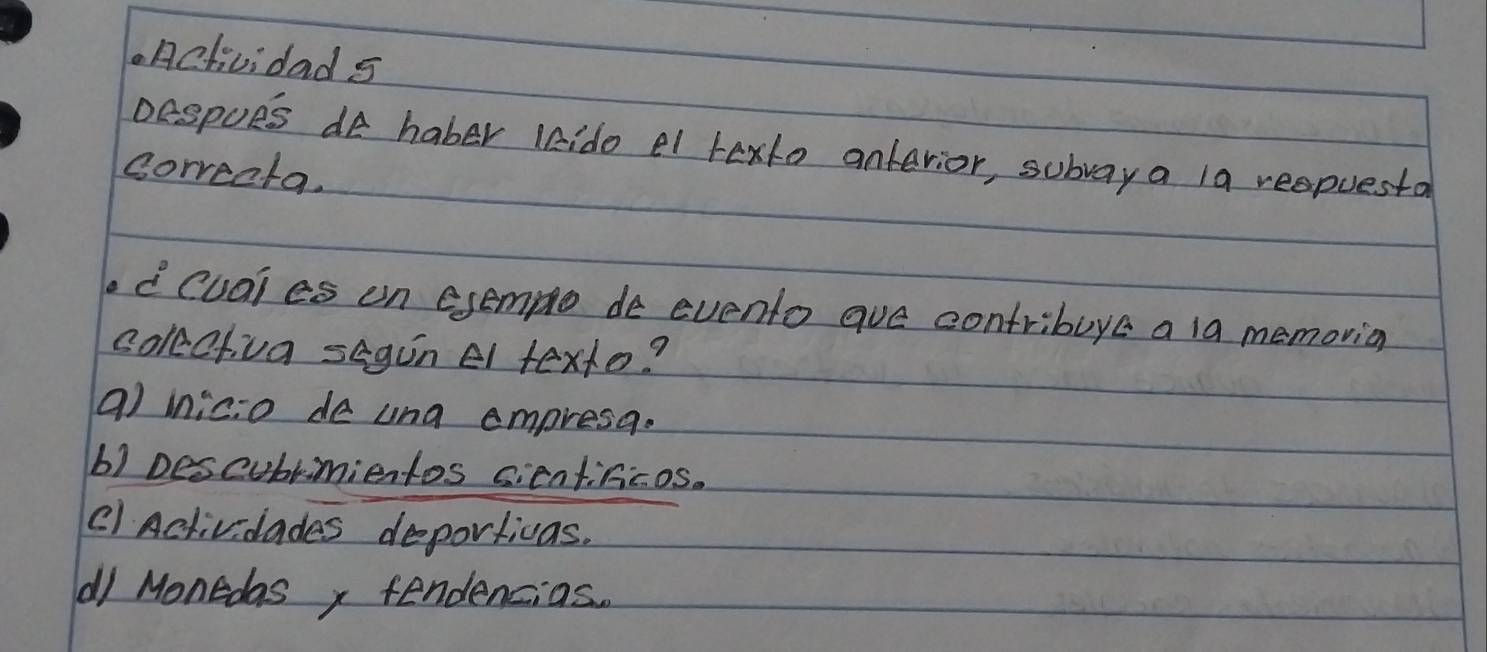 • Actividad 5
Después de haber leido el texto anterior, subraya la respuesta
correcta.
• ¿cuál es un ejemplo de evento que contribuye a la memoria
colectiva según el texto?
a) inicio de una empresa.
b) Descubrimientos cientificos.
c) Actividades deportivas.
d) Monedas y tendencias.